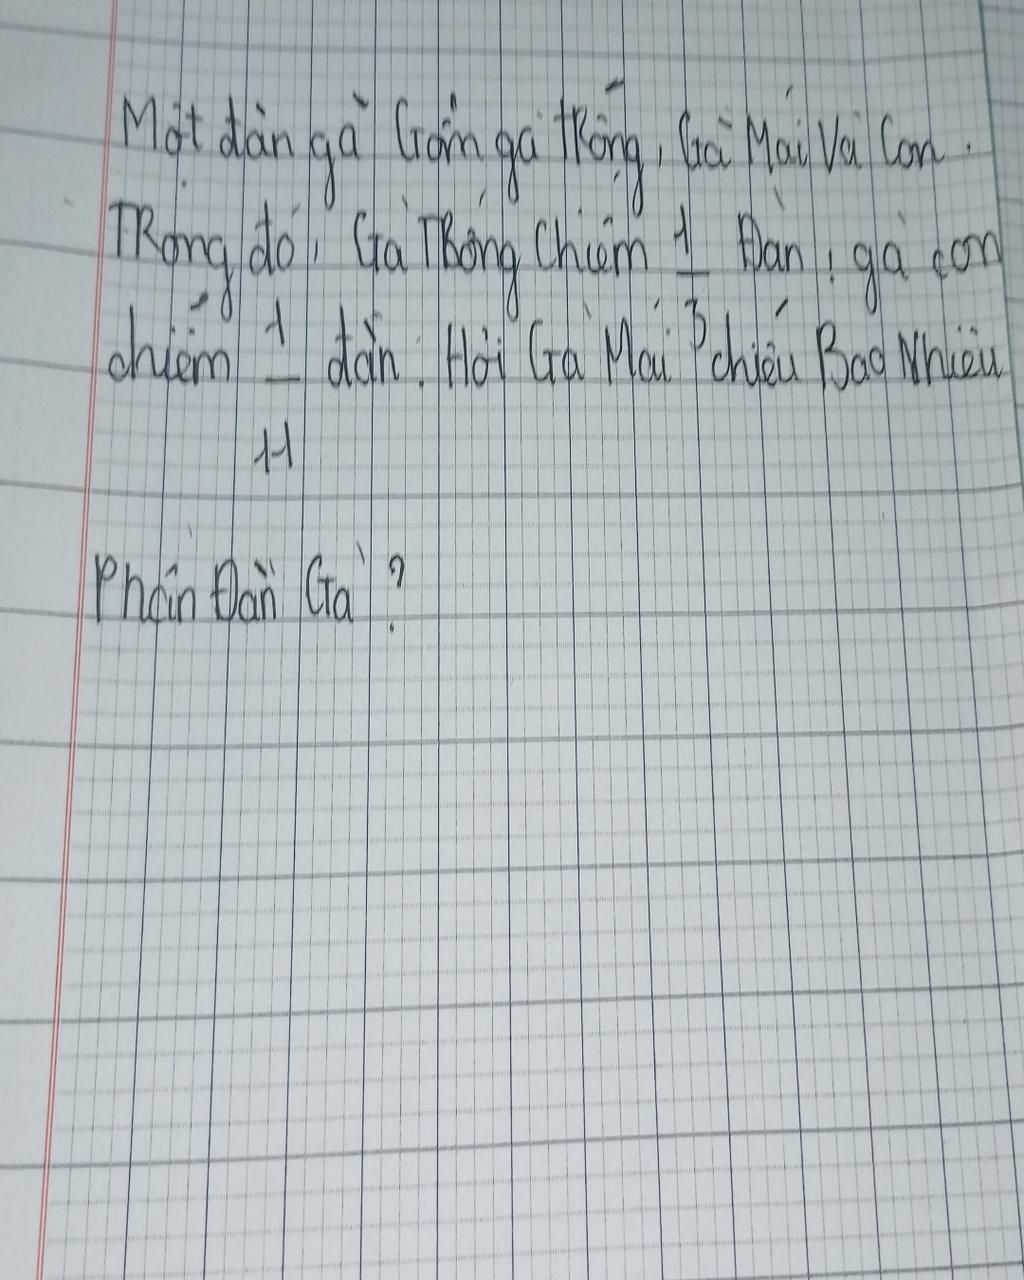 Một đàn gà Gồm gà trống, Gà Mái Và Con.
TRong đó, Gà TRống Chiếm 1/3 Đàn, gà con
chiếm 1/11 đàn. Hỏi Gà Mái chiếu Bao Nhiêu
Phần Đàn Gà?